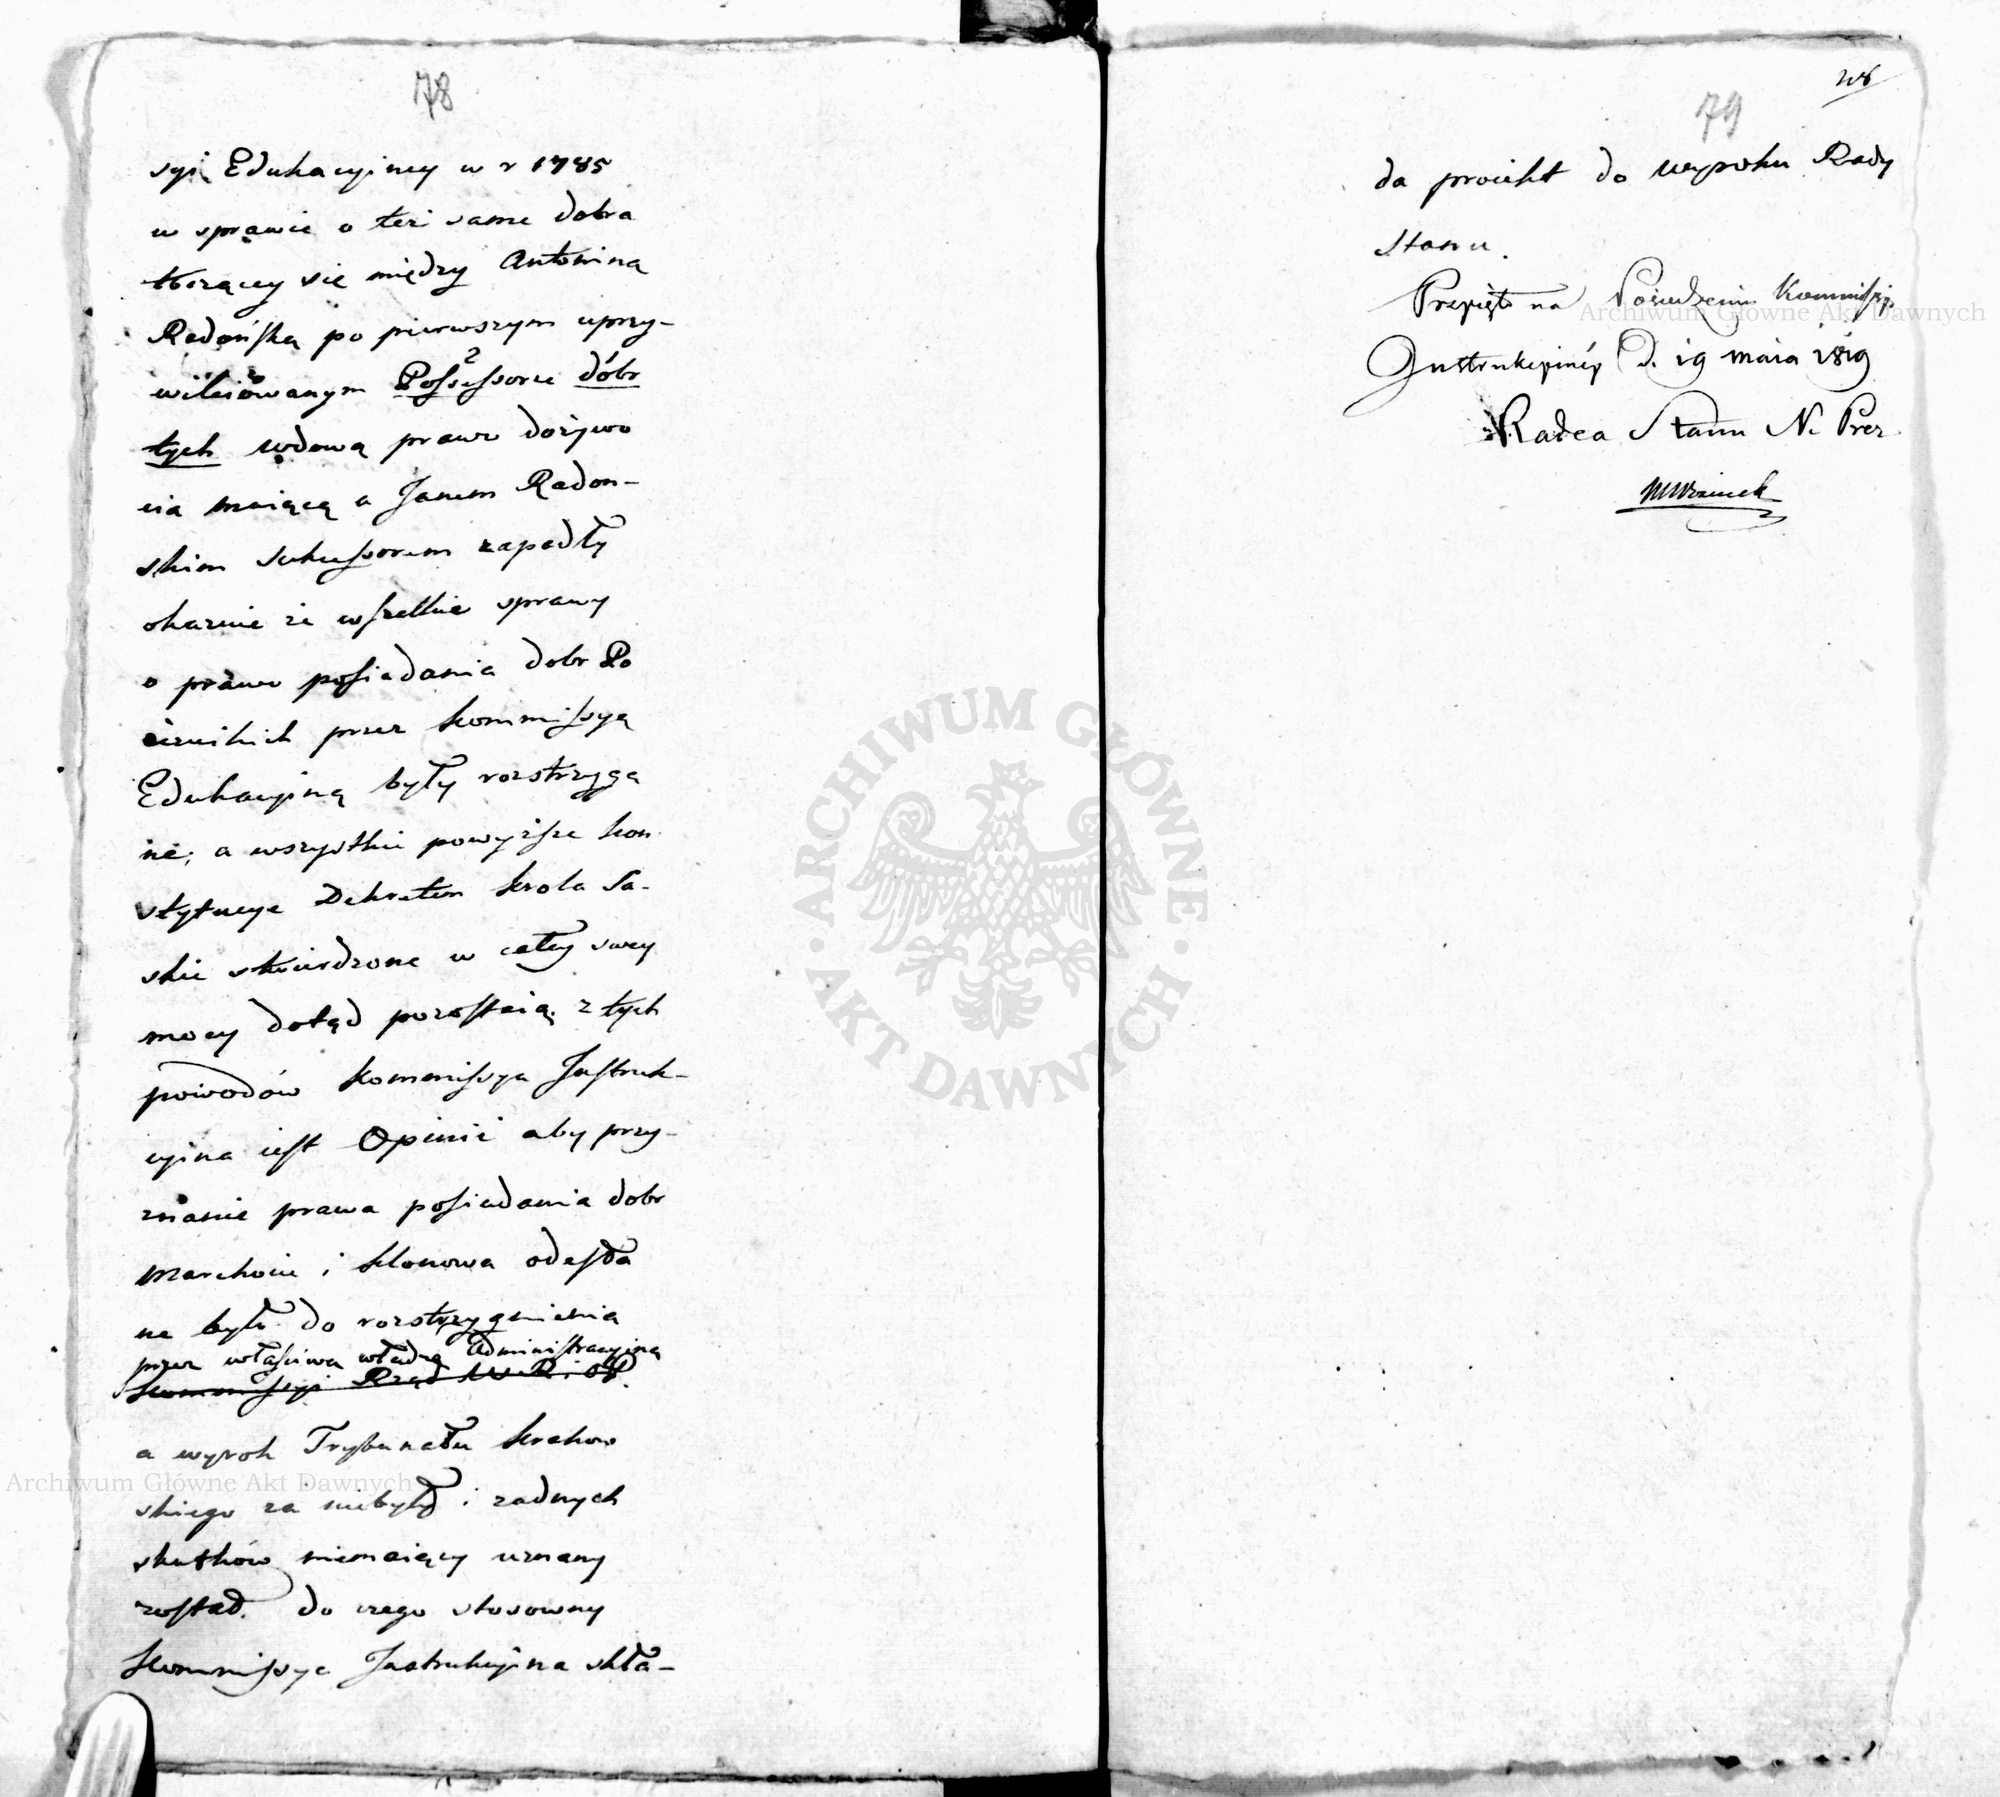 78
syi Edukacyiney w r 1785
w sprawie o też same dobra
toczącey się między Antoniną
Radońską po pierwszym uprzy-
wileiowanym Possessorze dóbr
tych wdową prawo dożywo
cia maiącą a Janem Radoń-
skim Sukcessorem zapadły
okazuie że wszelkie sprawy
o prawo posiadania dobr Po
iezuickich przez Kommissyą
Edukacyiną były rozstrzyga
ne; a wszystkie powyższe kon
stytucye Dekretem Krola Sa-
skie stwierdzone w całey swey
mocy dotąd pozostaią. z tych
powodów Kommissya Instruk-
cyina iest Opinii aby przy-
znanie prawa posiadania dobr
Marchocic i Klonowa odesła
ne było do rozstrzygnienia
przez właściwą władzę Administracyiną
Kommissyi Rząd W. R. i O. P.
a wyrok Trybunału Krakow
skiego za niebyły i żadnych
skutków niemaiący uznany
został. do czego stosowny
Kommissya Instrukcyina skła-
79
da proiekt do wyroku Rady
Stanu.
Przyięto na Posiedzeniu Kommissyi
Instrukcyinéy D. 19 maia 1819
Radca Stanu N. Prez
Woźnicki
Archiwum Główne Akt Dawnych
Archiwum Główne Akt Dawnych
ARCHIWUM GŁÓWNE AKT DAWNYCH